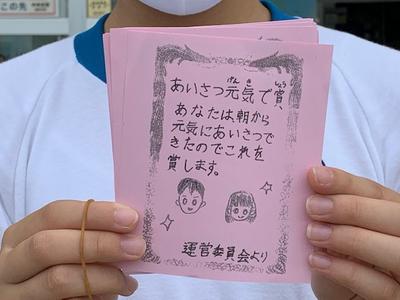 この先
あいさつ元気で賞、
げんき
しょう
あなたは朝から
元気にあいさつで
きたのでこれを
賞します。
運営委員会より